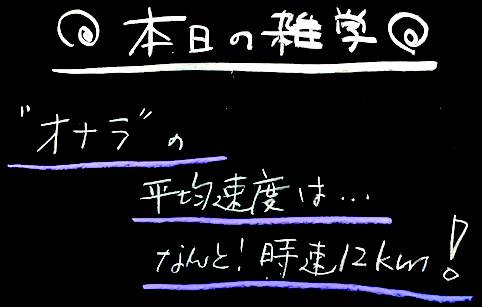 本日の雑学
"オナラ"の
平均速度は…
なんと!時速12km!